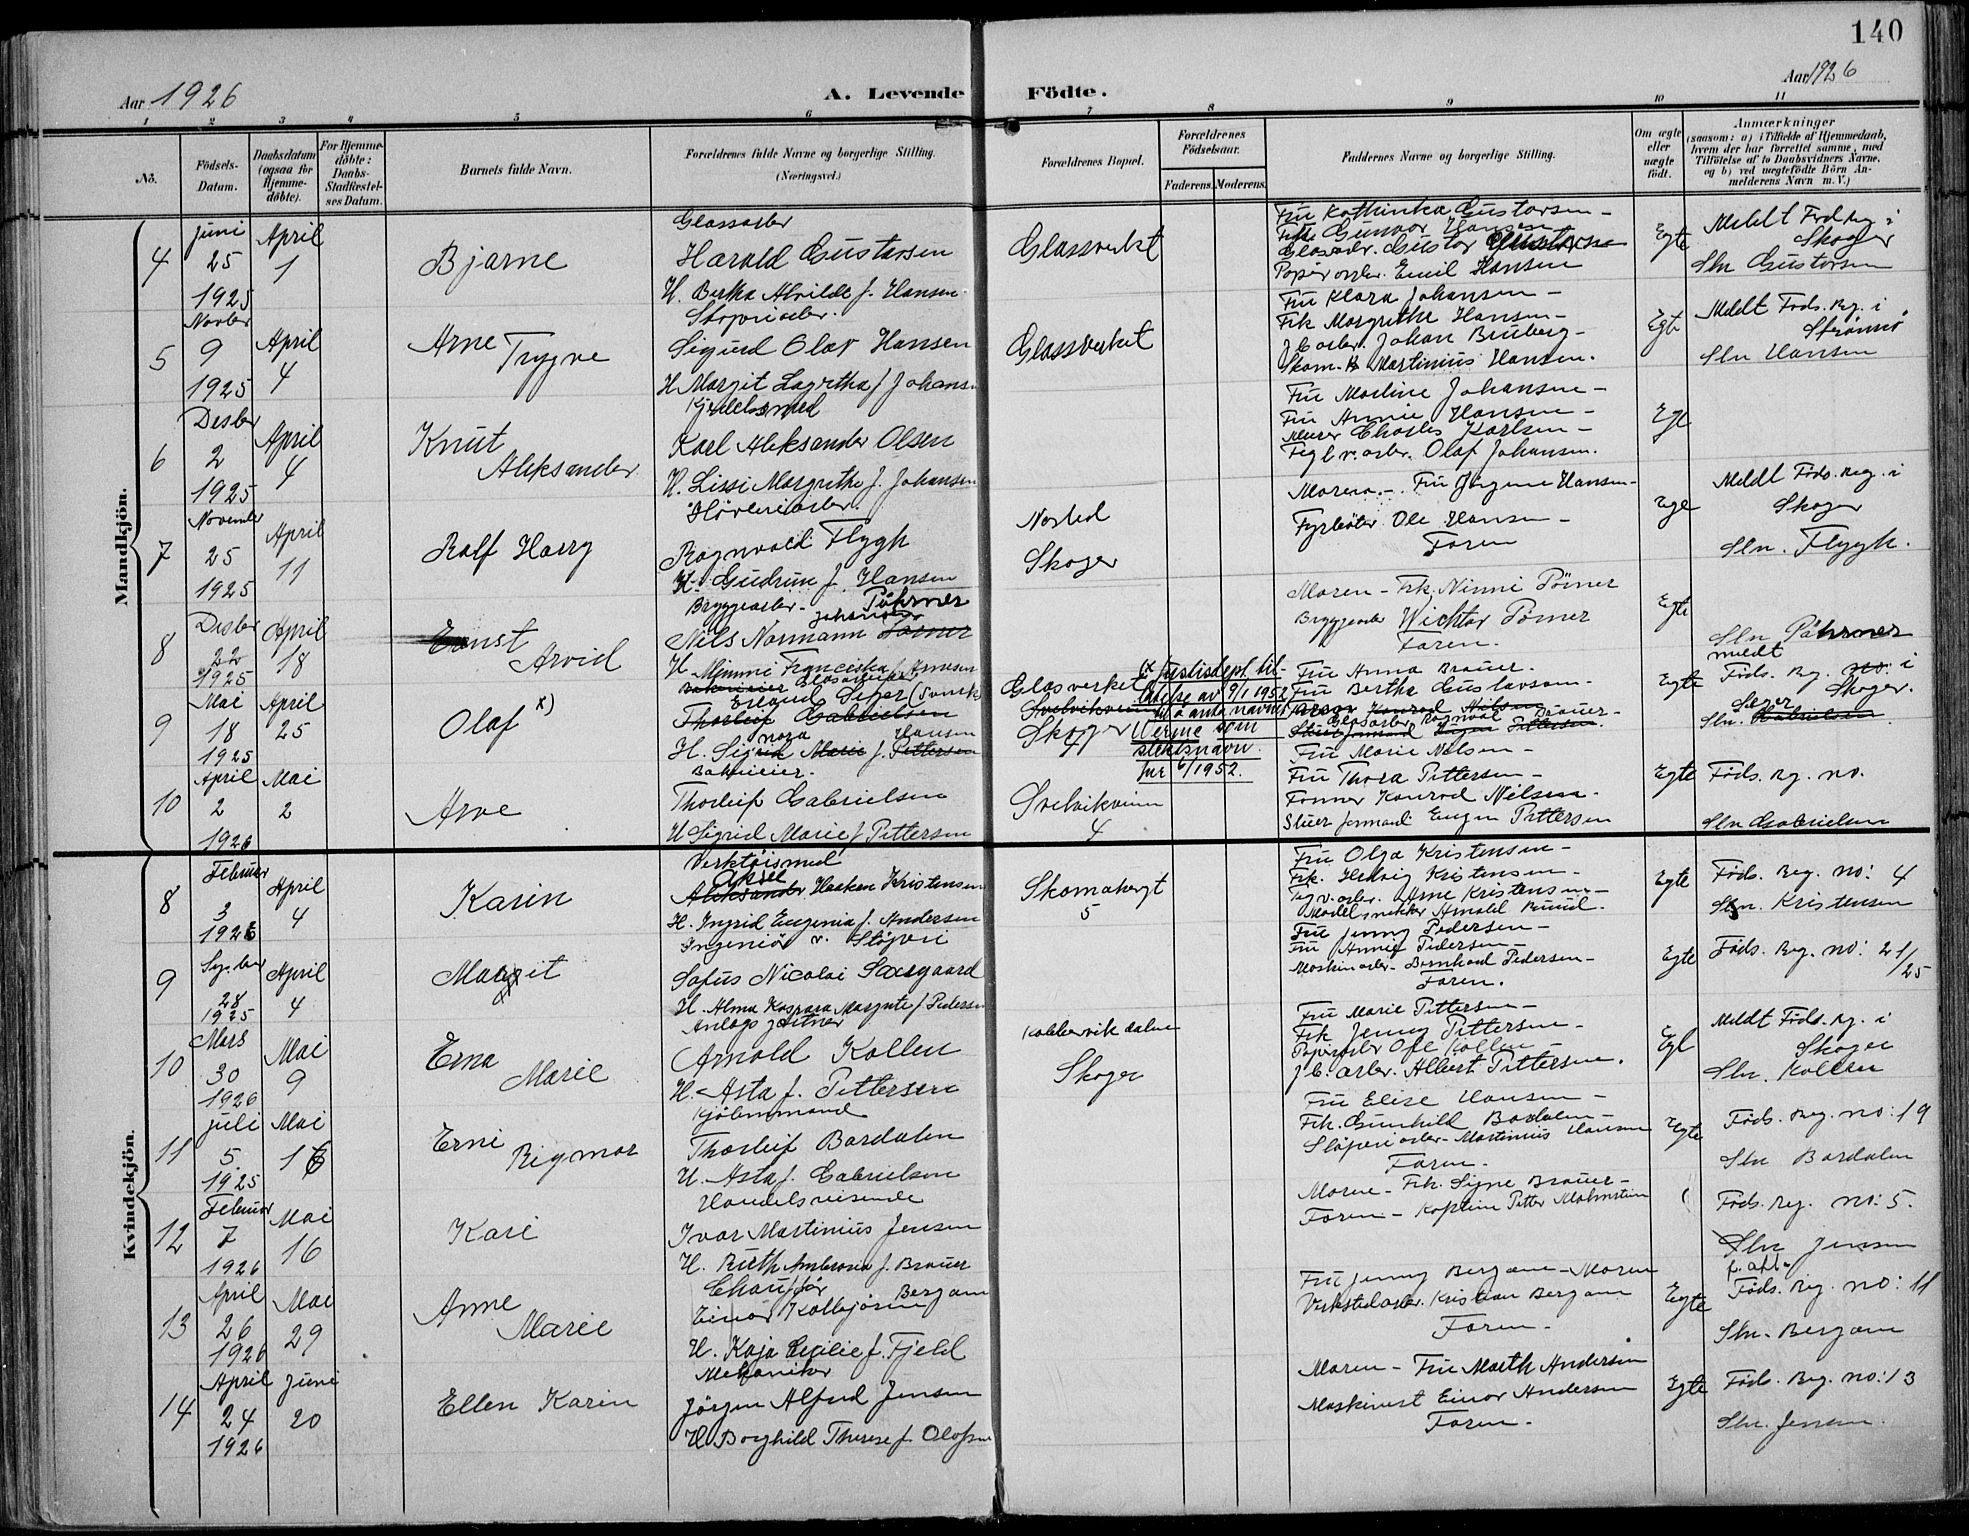 140
Aar 1926
A. Levende Födte.
Aar 1926
1 2 3 4 5 6 7 8 9 10 11
No.
Födsels-Datum.
Daabsdatum (ogsaa for Hjemme-døbte).
For Hjemme-døbte: Daabs-Stadfæstel-ses Datum.
Barnets fulde Navn.
Forældrenes fulde Navne og borgerlige Stilling. (Næringsvei.)
Forældrenes Bopæl.
Forældrenes Födselsaar.
Faderens. Moderens.
Faddernes Navne og borgerlige Stilling.
Om ægte eller uægte født.
Anmærkninger
(saasom: a) i Tilfælde af Hjemmedaab, hvem der har forrettet samme, med Tilføielse af to Daabsvidners Navne, og b) ved uægtefødte Börn An-melderens Navn m. V.)
Mandkjön.
4
Juni 25 1925
April 1
Bjarne
Glassarb
Harald Gustavsen
H. Bertha Alvilde f. Hansen
Glassverket
Fru Kathinka Gustavsen -
Frk. Gunvor Hansen
Glassarb. Gustav Gustavsen
Papirarb. Emil Hansen
Egte
Meldt Föd. Reg. i
Skoger
Sln Gustavsen
5
Novbr 9 1925
April 4
Arne Trygve
Støperiarb.
Sigurd Olav Hansen
H. Margit Lagertha f Johansen
Glassverket
Fru Klara Johansen -
Frk Margrethe Hansen -
J.b. arb. Johan Bruberg -
Martinius Hansen.
Egte
Meldt Föds. Reg. i
Strømsø
Sln Hansen
6
Desbr 2 1925
April 4
Knut Aleksander
Kjedelsmed
Karl Aleksander Olsen
H. Lissi Margrethe f. Johansen
Fru Martine Johansen -
Fru Annie Hansen -
Murer Charles Karlsen -
Teglv. arb. Olaf Johansen.
Egt
7
November 25 1925
April 11
Ralf Harry
Høvleriarb.
Ragnvald Flygh
H. Gudrun f. Hansen
Nøsted
Skoger
Moren - Fru Jörgine Hansen -
Fyrbøter Ole Hansen -
Faren
Egte
Meldt Föds. Reg. i
Skoger
Sln. Flygh.
8
Desbr 22 1925
April 18
Ernst Arvid
Bryggearb. - Johansen Påhrner
Nils Normann
H. Mimmi Franciska f. Arnesen
Moren - Frk. Ninni Pörner
Bryggearb Wicktor Pörner
Faren.
Egte
Sln Påhrner
9
Mai 18 1925
April 25
Olaf x)
Bakerieier Glasarbeider
Erland Seger (svensk)
Thorleif Gabrielsen
H. Sigrid Nora Marie f. Hansen Pettersen
Glasverket
Svelvikveien
Skoger
x) Justisdept. til-
latelse av 9/1 1952
til å anta navnet
Werme som
slektsnavn.
6/1952.
Fru Anna Brauer.
Fru Bertha Gustavson.
Glasarbr Ragnvald Brauer -
Egte
meldt
Föds. Reg. no. i
Skoger.
Seger
Sln. Gabrielsen
10
April 2 1926
Mai 2
Arve
Bakerieier.
Thorleif Gabrielsen
H Sigrid Marie f Pettersen
Svelvikveien
4
Fru Marie Nilsen -
Fru Thora Pettersen -
Former Konrad Nilsen -
Stuer formand Eugen Pettersen
Egte
Föds. reg. no.
Sln Gabrielsen
Kvindekjön.
8
Februar 3 1926
April 4
Karin
Verktöismed
Aksel
Aleksander Haaken Kristensen
H. Ingrid Eugenia f. Andersen
Skomakergt
5
Fru Olga Kristensen -
Frk. Hedvig Kristensen -
Tegv. arb. Arne Kristensen -
Modelsnekker Arnold Ruud.
Egte
Föds. Reg. no: 4
Sln. Kristensen
9
28 1925
April 4
Margit
Ingeniör v. Støperi
Sofus Nicolai Saxegaard
H. Alma Kaspara Margrete f Pedersen
Fru Jenny Pedersen -
Fru Annie Pedersen -
Maskinarb. Bernhard Pedersen -
Faren.
Egte
Föds. Reg. no: 21/25
10
Mars 30 1926
Mai 9
Erna Marie
Anlægsgartner
Arnold Kollen
H. Asta f. Pettersen
Kobbervikdalen
Skoger
Fru Marie Pettersen -
Frk Jenny Pettersen -
Papirarb Ole Kollen -
J.b. arb. Albert Pettersen.
Egt
Meldt Föds. Reg. i
Skoger
Sln. Kollen
11
Juli 5. 1925
Mai 16
Erni Rigmor
Kjølemmand
Thorleif Bordalen
H. Asta f. Gabrielsen
Fru Elise Hansen -
Frk. Gunhild Bordalen -
Støperiarb - Martinius Hansen
Faren.
Egte
Föds. reg. no: 19
Sln Bordalen
12
Februar 7 1926
Mai 16
Kari
Handelsreisende
Ivar Martinius Jensen
H. Ruth Ambrosia f. Brauer
Moren - Frk. Signe Brauer -
Faren - Kaptein Petter Malmstein
Föds. reg. no: 5.
Sln Jensen
f. att.
13
April 26 1926
Mai 29
Anne Marie
Chauffør
Einar Kolbjörnsen Bergan
H. Kaja Cecilie f. Fjeld
Fru Jenny Bergan - Moren
Verkstedarb. Kristian Bergan
Faren.
Egte
Föds. Reg. no: 11
Sln. Bergan
14
April 24 1926
Juni 20
Ellen Karin
Mekaniker
Jörgen Alfred Jensen
H Borghild Therese f. Olafsen
Moren - Fru Marth Andersen
Maskinist Einar Andersen
Faren.
Egte
Föds. Reg. no: 13
Sln. Jensen.